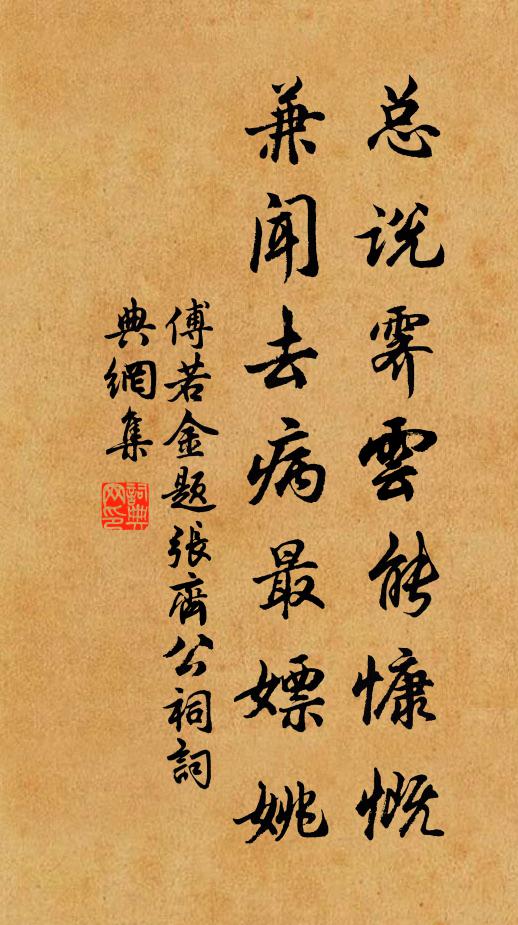 总说霁雲能慷慨
兼闻去病最嫖姚
傅若金题張齊公祠詞
典網集
詞典網印